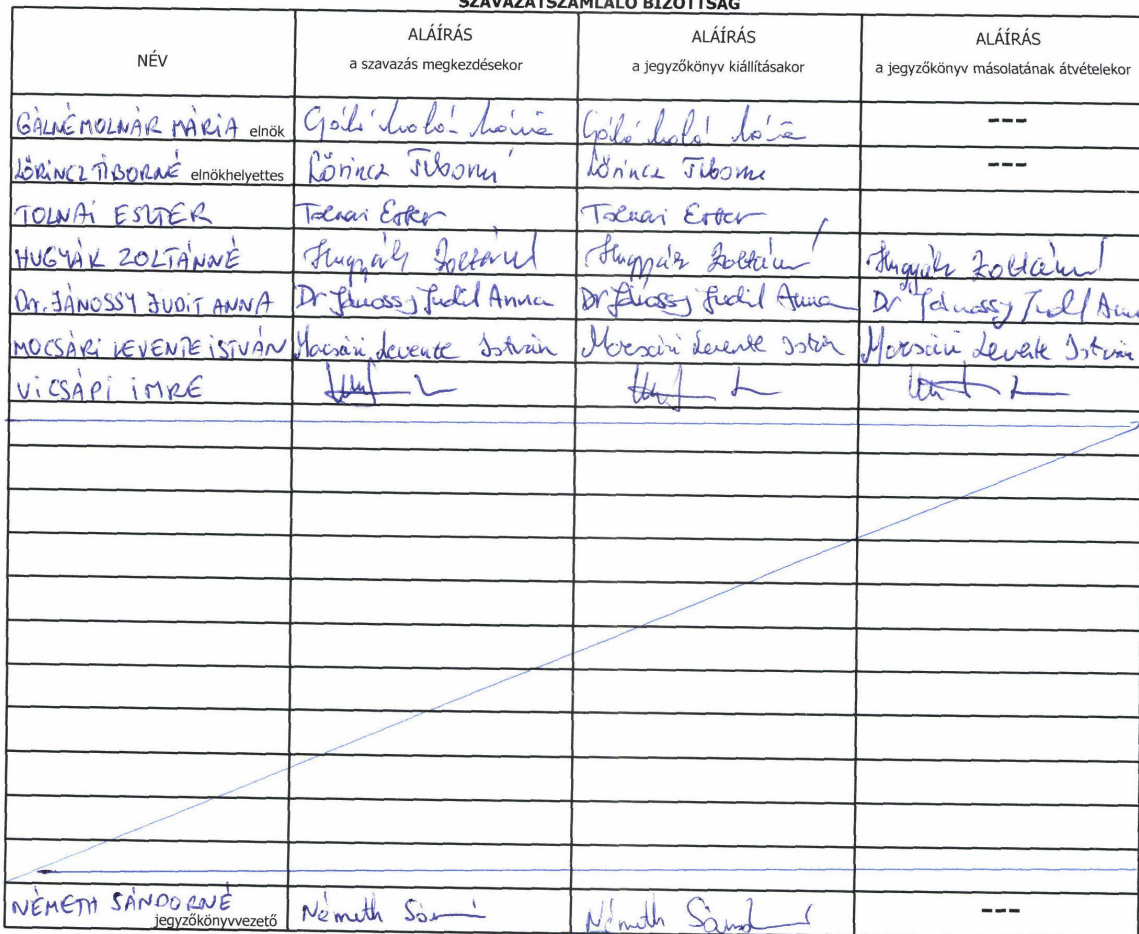 SZAVAZATSZÁMLÁLÓ BIZOTTSÁG
NÉV
ALÁÍRÁS
a szavazás megkezdésekor
ALÁÍRÁS
a jegyzőkönyv kiállításakor
ALÁÍRÁS
a jegyzőkönyv másolatának átvételekor
GÁLNÉ MOLNÁR MÁRIA elnök ---
LŐRINCZ TIBORNÉ elnökhelyettes Lőrincz Tiborné Lőrincz Tiborné ---
TOLNAI ESZTER Tolnai Eszter Tolnai Eszter
HUGYÁK ZOLTÁNNÉ Hugyák Zoltánné Hugyák Zoltánné Hugyák Zoltánné
Dr. JÁNOSSY JUDIT ANNA Dr Jánossy Judit Anna Dr Jánossy Judit Anna Dr Jánossy Judit Anna
MOCSÁRI LEVENTE ISTVÁN Mocsári Levente István Mocsári Levente István Mocsári Levente István
VICSÁPI IMRE
NÉMETH SÁNDORNÉ
jegyzőkönyvvezető Németh Németh ---